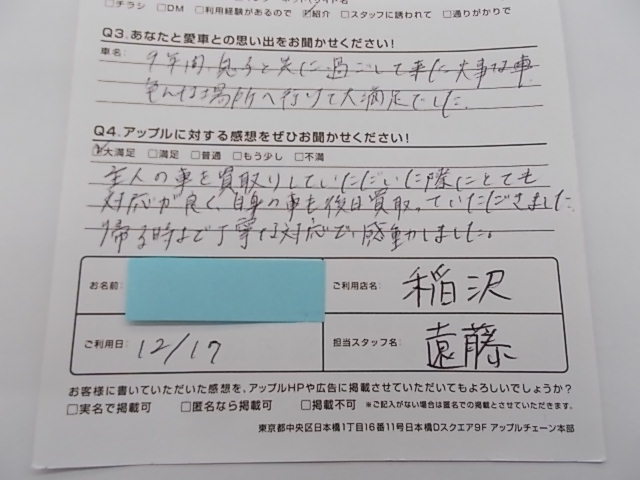 □チラシ □DM □利用経験があるので ☑紹介 □スタッフに誘われて □通りがかりで
Q3.あなたと愛車との思い出をお聞かせください!
車名: 9年間息子と共に過ごして来た大事な車
色んな場所へ行けて大満足でした
Q4.アップルに対する感想をぜひお聞かせください!
☑大満足 □満足 □普通 □もう少し □不満
主人の車を買取りしていただいた際にとても
対応が良く、自身の車も後日買取っていただきました
帰る時まで丁寧な対応で、感動しました。
お名前:
ご利用店名: 稲沢
ご利用日: 12/17
担当スタッフ名: 遠藤
お客様に書いていただいた感想を、アップルHPや広告に掲載させていただいてもよろしいでしょうか?
□実名で掲載可 □匿名なら掲載可 □掲載不可 ※ご記入がない場合は匿名での掲載とさせていただきます。
東京都中央区日本橋1丁目16番11号日本橋Dスクエア9F アップルチェーン本部